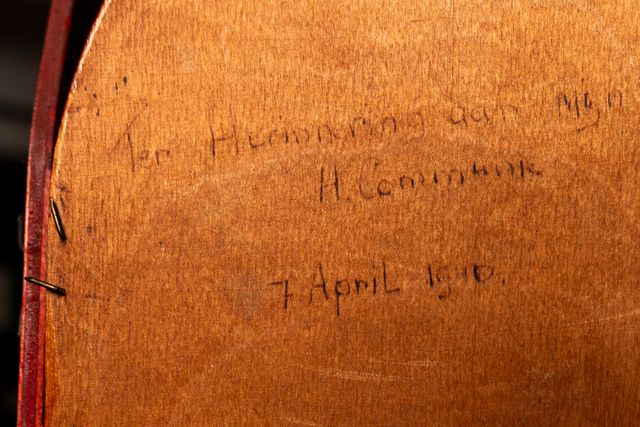 Ter Herinnering aan Mijn
H. Communie
7 April 1910.